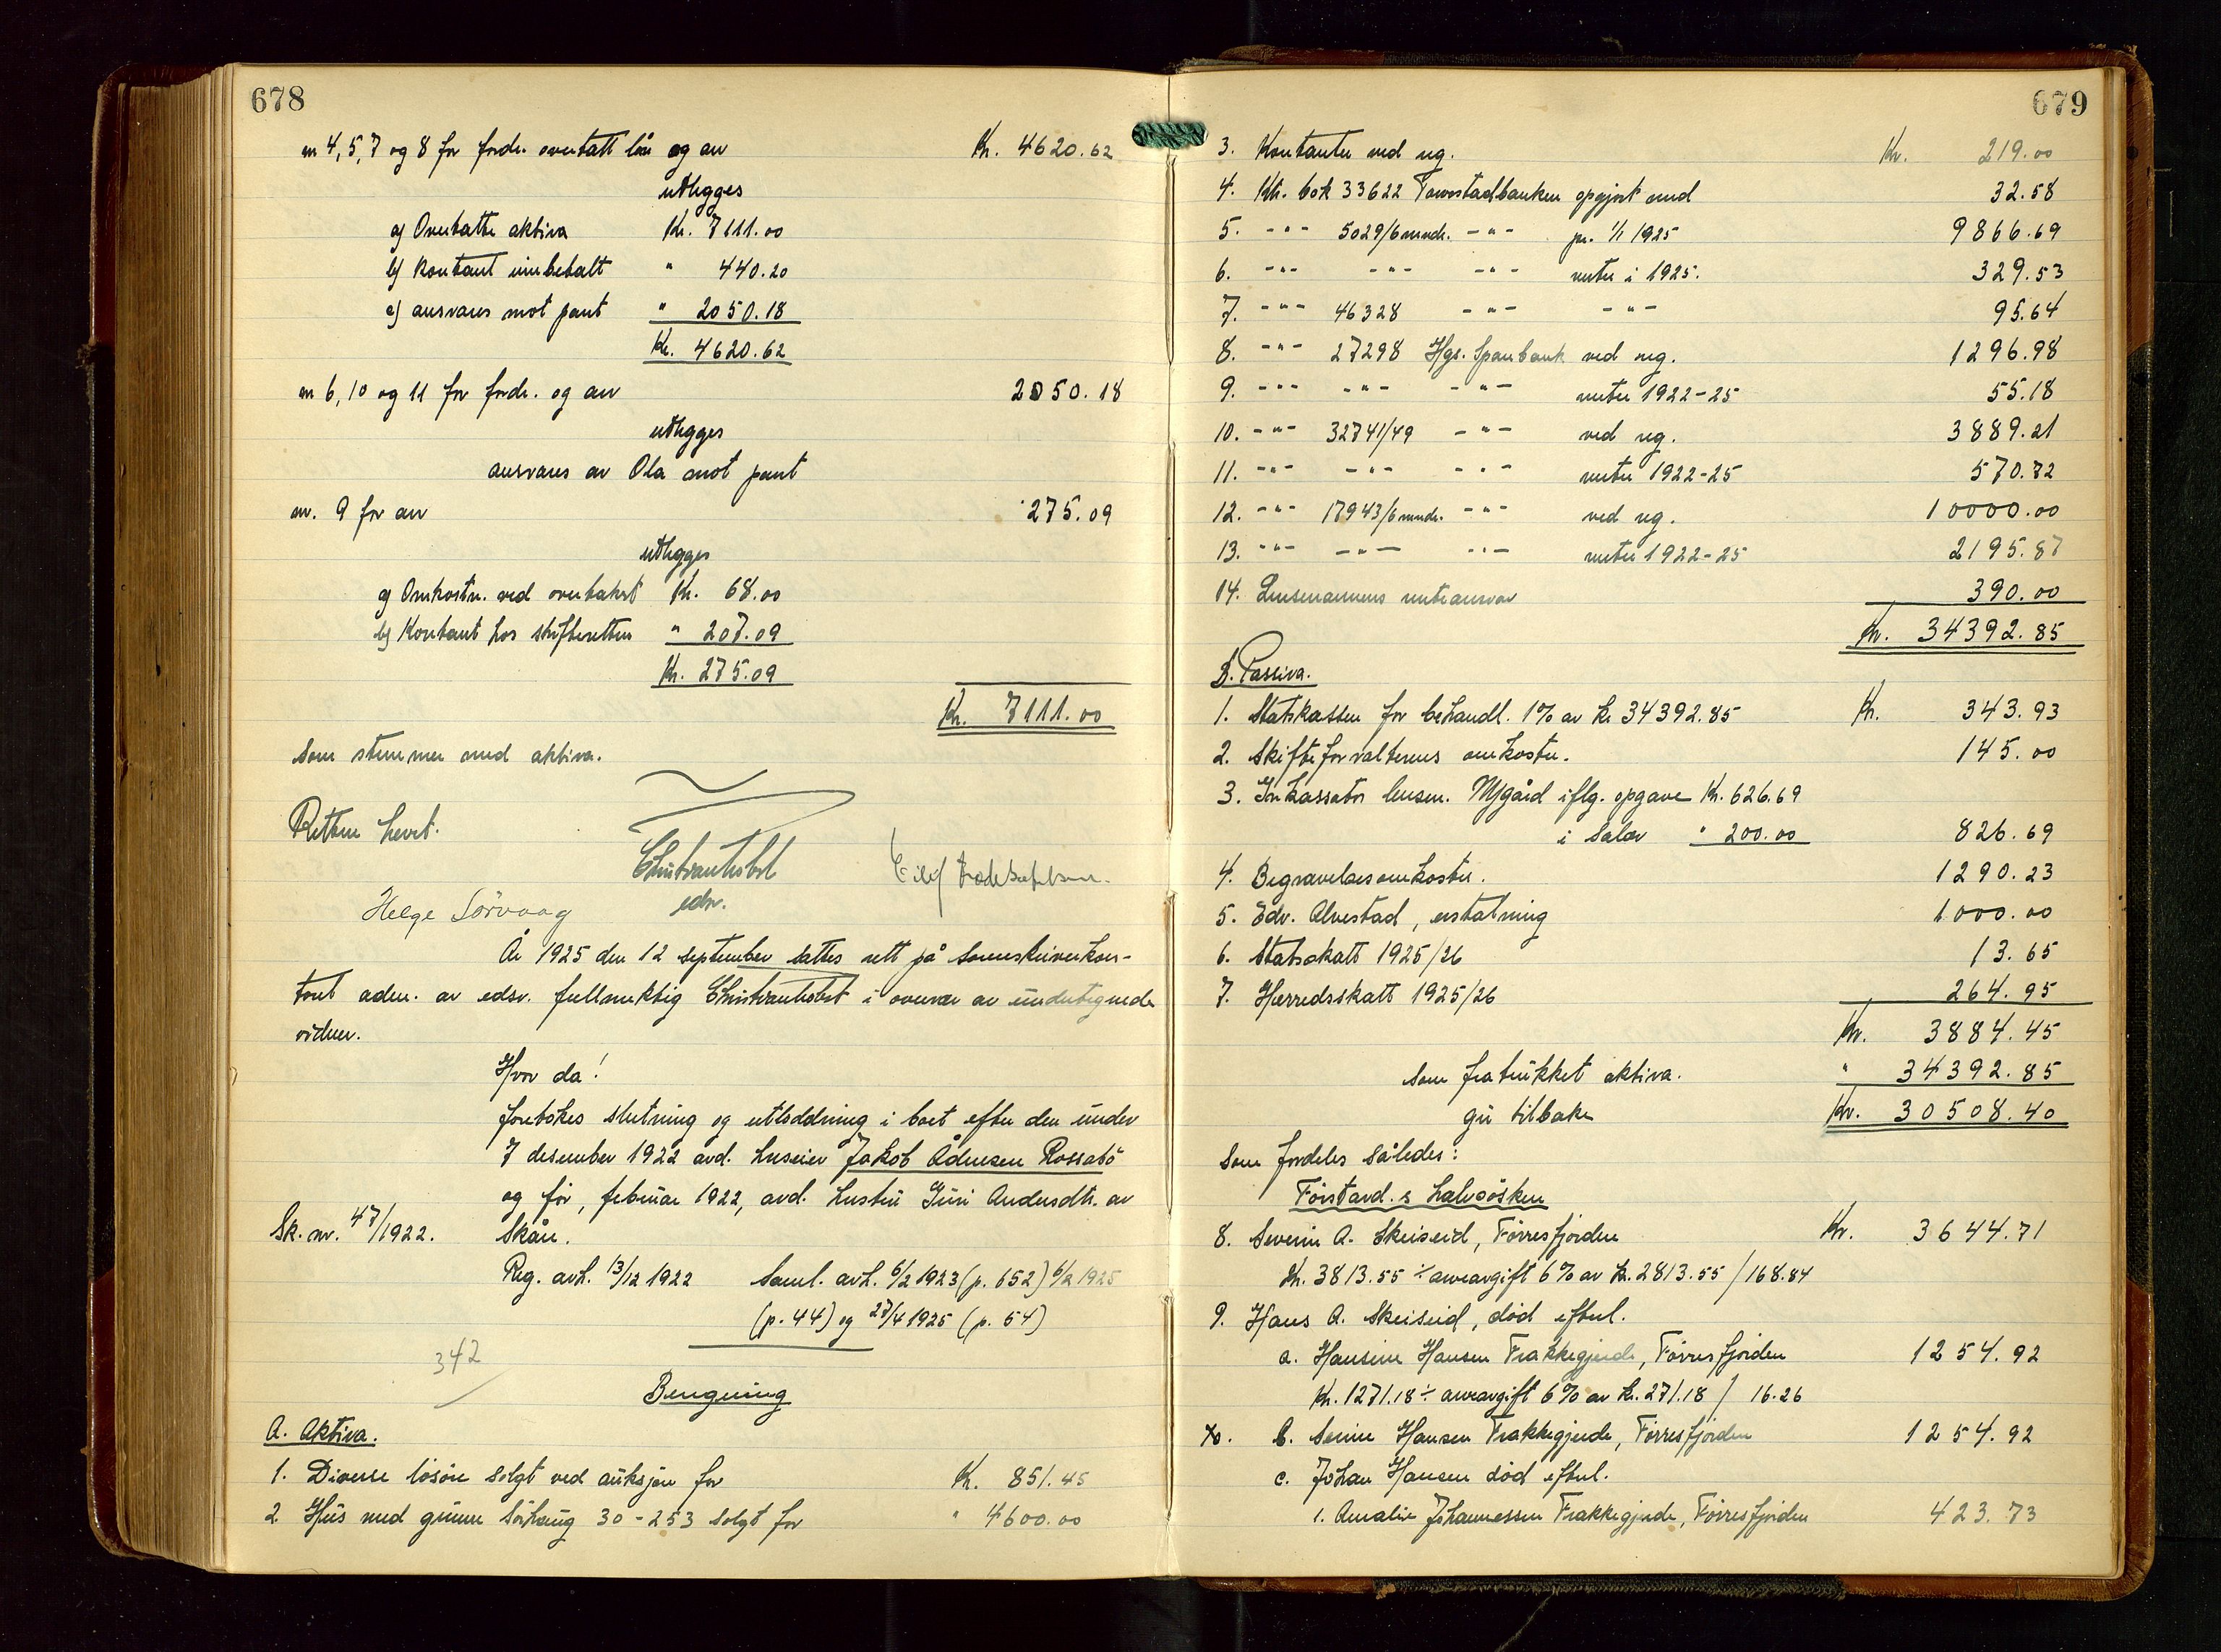 678
nr 4, 5, 7 og 8 for fordr. overtatt lån og arv Kr. 4620.62
utlegges
a) Overtatte aktiva Kr. 7111.00
b) Kontant innbetalt " 440.20
c) ansvares mot pant " 2050.18
Kr. 4620.62
nr 6, 10 og 11 for fordr. og arv 2050.18
utlegges
ansvares av Ola mot pant
nr. 9 for arv 275.09
utlegges
a) Omkostn. ved overtakst Kr. 68.00
b) Kontant hos skifteretten " 207.09
Kr. 275.09
Kr. 7111.00
som stemmer med aktiva.
Retten hevet.
edsv.
Helge Sörvaag
År 1925 den 12 september sattes rett på Sorenskriverkon-
toret adm. av edsv. fullmektig i overvær av undertegnede
vidner.
Hvor da!
foretokes slutning og utloddning i boet efter den under
7 desember 1922 avd. huseier Jakob Ådnesen Rossabö
og før, februar 1922, avd. hustru Guri Andersdtr. av
Sk. nr. 47/1922. Skåre.
Reg. avh. 13/12 1922 Saml. avh. 6/2 1923 (p. 652) 6/2 1925
(p. 44) og 27/4 1925 (p. 54)
342
Beregning
A. Aktiva.
1. Diverse lösöre solgt ved auksjon for Kr. 851.45
2. Hus med grunn Sörhaug 30-253 solgt for " 4600.00
679
3. Kontanter ved reg. Kr. 219.00
4. Ktr. bok 33622 Torvestadbanken opgjort med 32.58
5. -"- 5029/6 mndr. -"- pr. 1/1 1925 9866.69
6. -"- -"- -"- renter i 1925. 329.53
7. -"- 46328 -"- -"- 95.64
8. -"- 27298 Hgs. Sparebank ved reg. 1296.98
9. -"- -"- -"- renter 1922-25 55.18
10. -"- 32741/49 -"- ved reg. 3889.21
11. -"- -"- -"- renter 1922-25 570.72
12. -"- 17943/6 mndr. -"- ved reg. 10000.00
13. -"- -"- -"- renter 1922-25 2195.87
14. Lensmannens renteansvar 390.00
Kr. 34392.85
B. Passiva.
1. Statskassen for behandl. 1% av kr 34392.85 Kr. 343.93
2. Skifteforvalterens omkostn. 145.00
3. Inkassator lensm. Mjgård iflg. opgave Kr. 626.69
i salær " 200.00 826.69
4. Begravelsesomkostn. 1290.23
5. Edv. Alvestad, erstatning 1000.00
6. Statsskatt 1925/26 13.65
7. Herredsskatt 1925/26 264.95
Kr. 3884.45
som fratrukket aktiva. " 34392.85
gir tilbake Kr. 30508.40
Som fordeles således:
Förstavd.s halvsösken
8. Severin A. Skeiseid, Förresfjorden Kr. 3644.71
Kr. 3813.55 ÷ arveavgift 6% av kr. 2813.55 / 168.84
9. Hans A. Skeiseid, död efterl.
a. Hansine Hansen Frakkegjerde, Förresfjorden 1254.92
Kr. 1271.18 ÷ arveavgift 6% av kr. 271.18 / 16.26
10. b. Serine Hansen Frakkegjerde, Förresfjorden 1254.92
c. Johan Hansen död efterl.
1. Amalie Johannessen Frakkegjerde, Förresfjorden 423.73